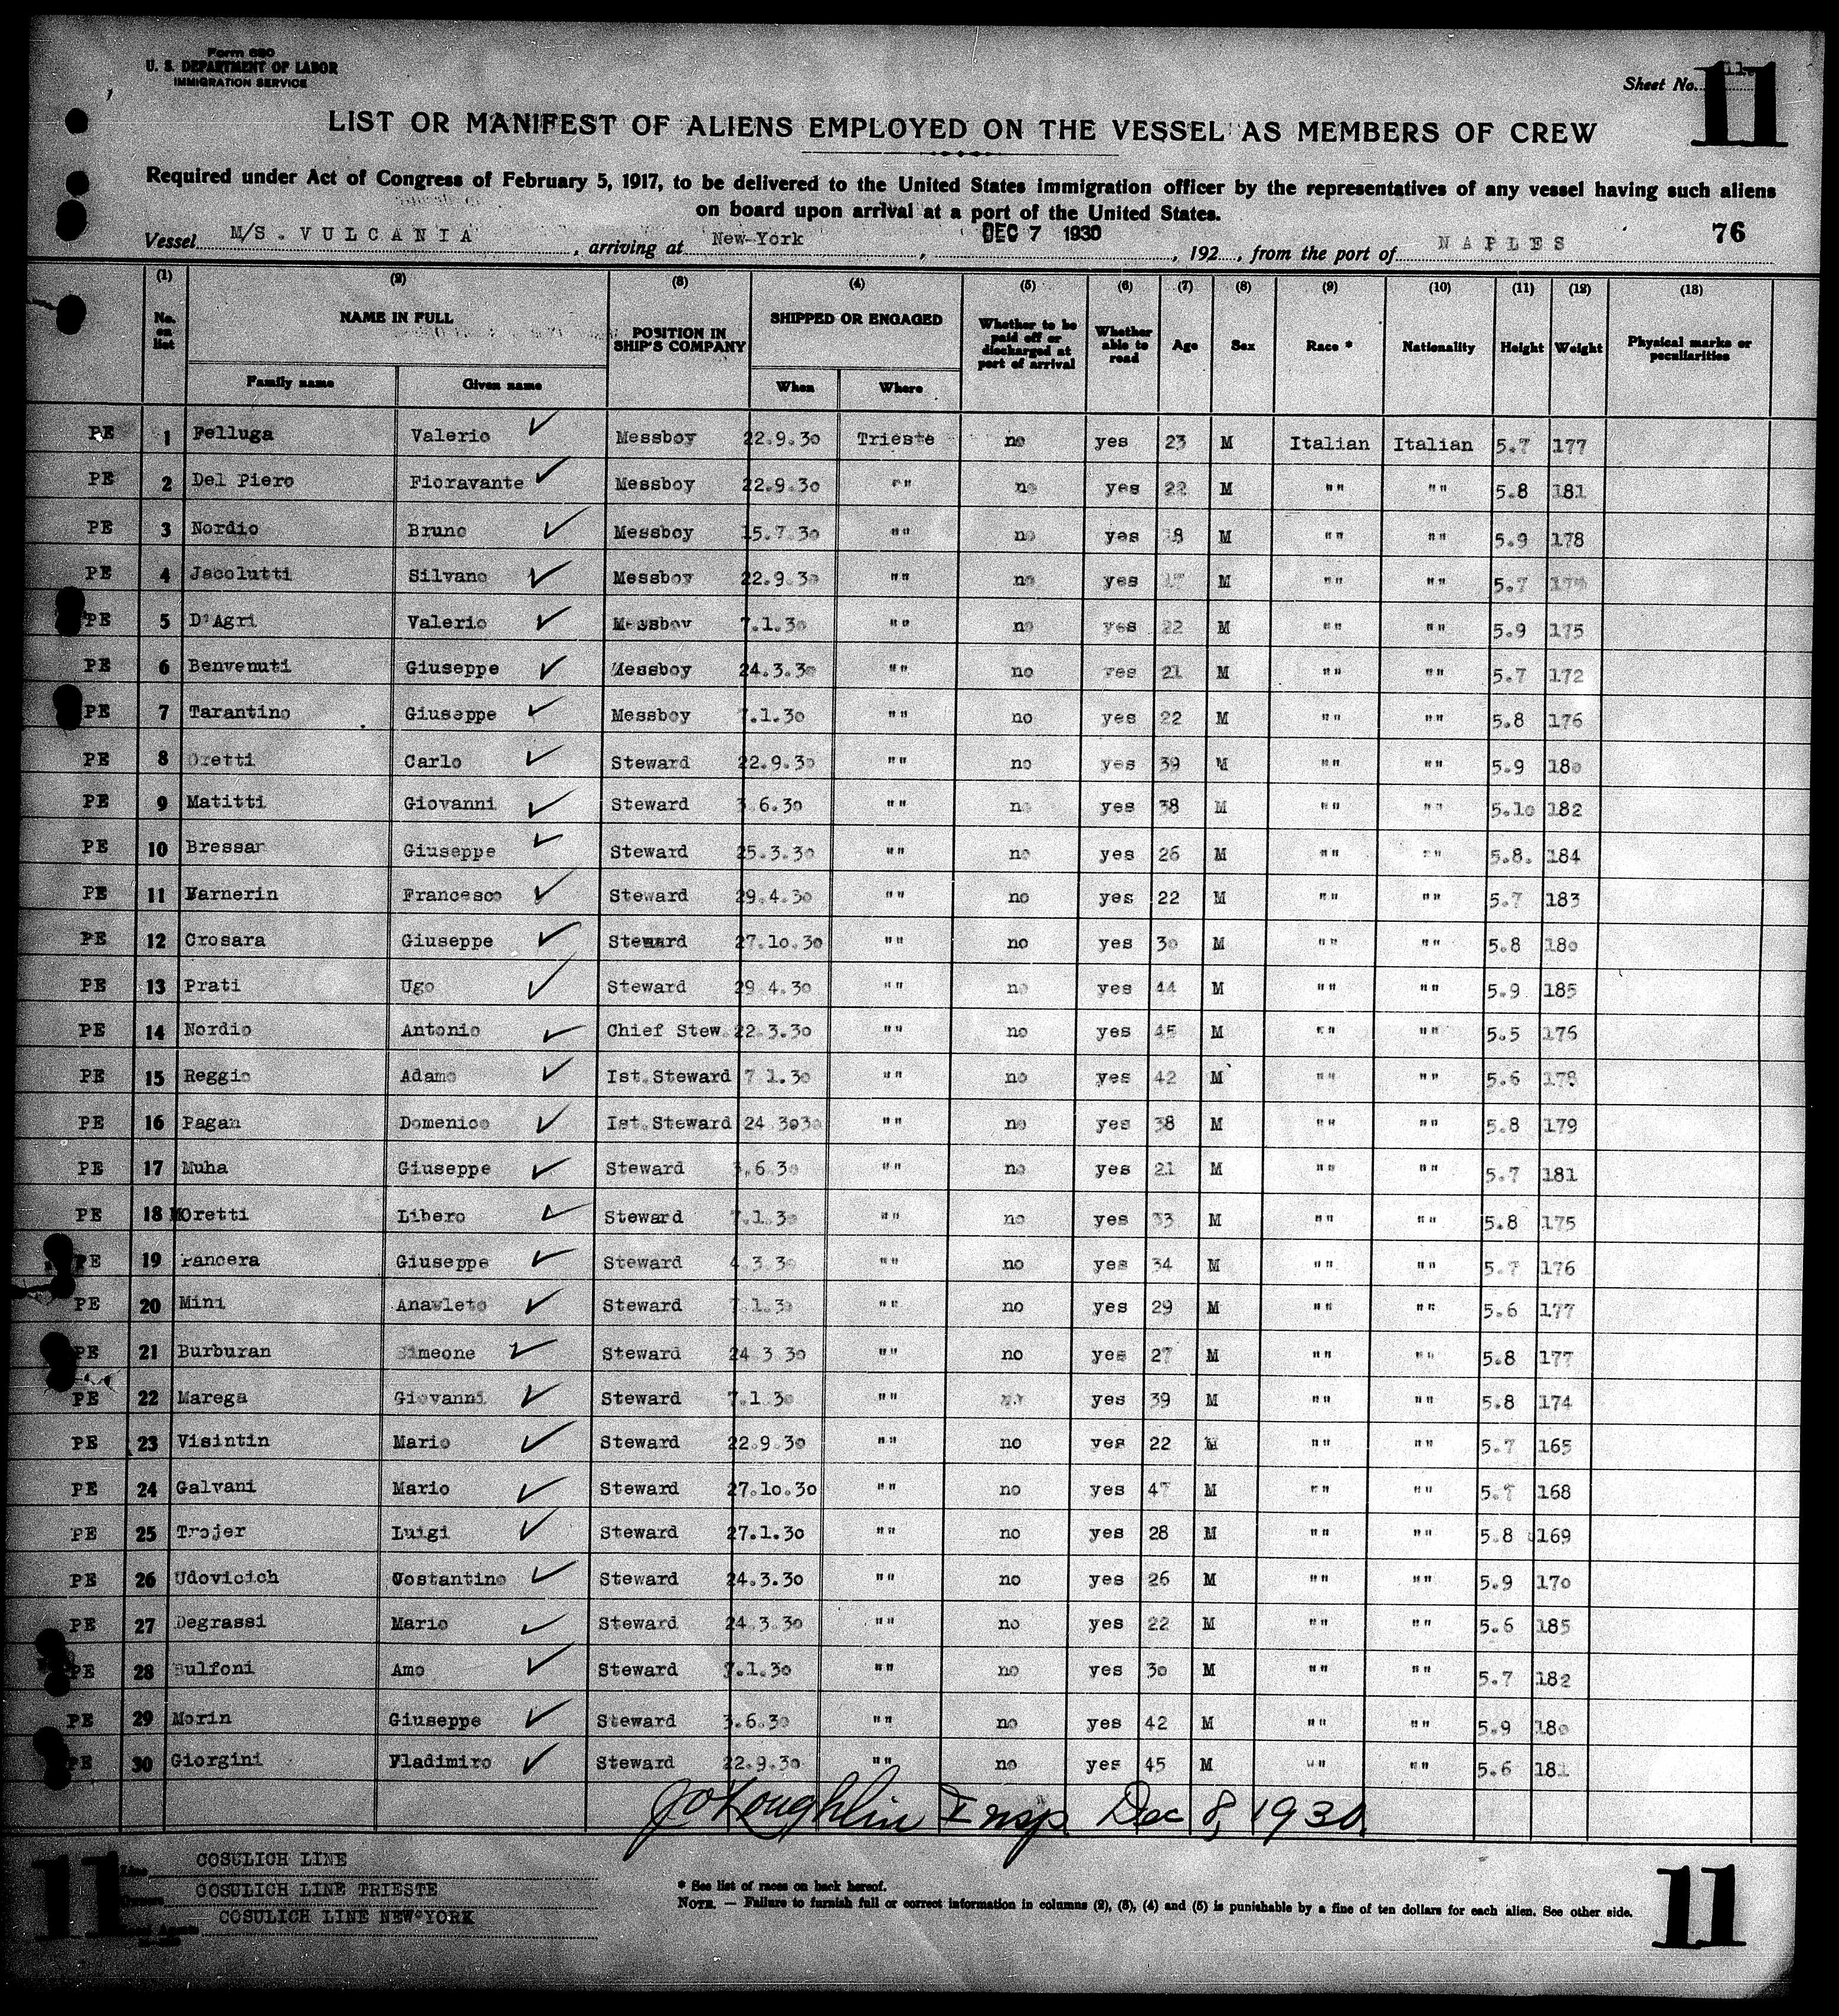 Form 680
U. S. DEPARTMENT OF LABOR
IMMIGRATION SERVICE
Sheet No. 11
11
LIST OR MANIFEST OF ALIENS EMPLOYED ON THE VESSEL AS MEMBERS OF CREW
Required under Act of Congress of February 5, 1917, to be delivered to the United States immigration officer by the representatives of any vessel having such aliens
on board upon arrival at a port of the United States.
Vessel M/S. VULCANIA, arriving at New-York, DEC 7 1930, 192, from the port of NAPLES 76
(1) (2) (3) (4) (5) (6) (7) (8) (9) (10) (11) (12) (13)
No. on list NAME IN FULL POSITION IN SHIP'S COMPANY SHIPPED OR ENGAGED Whether to be paid off or discharged at port of arrival Whether able to read Age Sex Race * Nationality Height Weight Physical marks or peculiarities
Family name Given name When Where
PE 1 Felluga Valerio Messboy 22.9.30 Trieste no yes 23 M Italian Italian 5.7 177
PE 2 Del Piero Fioravante Messboy 22.9.30 "" no yes 22 M "" "" 5.8 181
PE 3 Nordio Bruno Messboy 15.7.30 "" no yes 18 M "" "" 5.9 178
PE 4 Jacolutti Silvano Messboy 22.9.30 "" no yes M "" "" 5.7
PE 5 D'Agri Valerio Messboy 7.1.30 "" no yes 22 M "" "" 5.9 175
PE 6 Benvenuti Giuseppe Messboy 24.3.30 "" no yes 21 M "" "" 5.7 172
PE 7 Tarantino Giuseppe Messboy 7.1.30 "" no yes 22 M "" "" 5.8 176
PE 8 Oretti Carlo Steward 22.9.30 "" no yes 39 M "" "" 5.9 180
PE 9 Matitti Giovanni Steward 3 6.30 "" no yes 38 M "" "" 5.10 182
PE 10 Bressan Giuseppe Steward 25.3.30 "" no yes 26 M "" "" 5.8. 184
PE 11 Varnerin Francesco Steward 29.4.30 "" no yes 22 M "" "" 5.7 183
PE 12 Crosara Giuseppe Steward 27.10.30 "" no yes 30 M "" "" 5.8 180
PE 13 Prati Ugo Steward 29 4.30 "" no yes 44 M "" "" 5.9 185
PE 14 Nordio Antonio Chief Stew. 22.3.30 "" no yes 45 M "" "" 5.5 176
PE 15 Reggio Adamo Ist.Steward 7 1.30 "" no yes 42 M "" "" 5.6 178
PE 16 Pagan Domenico Ist.Steward 24 3030 "" no yes 38 M "" "" 5.8 179
PE 17 Muha Giuseppe Steward 3.6.30 "" no yes 21 M "" "" 5.7 181
PE 18 Moretti Libero Steward 7.1.30 "" no yes 33 M "" "" 5.8 175
PE 19 Pancera Giuseppe Steward 4.3.30 "" no yes 34 M "" "" 5.7 176
PE 20 Mini Anawleto Steward 7.1.30 "" no yes 29 M "" "" 5.6 177
PE 21 Burburan Simeone Steward 24 3 30 "" no yes 27 M "" "" 5.8 177
PE 22 Marega Giovanni Steward 7.1 30 "" no yes 39 M "" "" 5.8 174
PE 23 Visintin Mario Steward 22.9.30 "" no yes 22 M "" "" 5.7 165
PE 24 Galvani Mario Steward 27.10.30 "" no yes 47 M "" "" 5.7 168
PE 25 Trojer Luigi Steward 27.1.30 "" no yes 28 M "" "" 5.8 169
PE 26 Udovicich Costantino Steward 24.3.30 "" no yes 26 M "" "" 5.9 170
PE 27 Degrassi Mario Steward 24.3.30 "" no yes 22 M "" "" 5.6 185
PE 28 Bulfoni Amo Steward 7.1.30 "" no yes 30 M "" "" 5.7 182
PE 29 Morin Giuseppe Steward 3.6.30 "" no yes 42 M "" "" 5.9 180
PE 30 Giorgini Vladimiro Steward 22.9.30 "" no yes 45 M "" "" 5.6 181
JO'Loughlin Insp. Dec 8, 1930
11 Line COSULICH LINE
Owners COSULICH LINE TRIESTE
COSULICH LINE NEW-YORK
* See list of races on back hereof.
NOTE. — Failure to furnish full or correct information in columns (2), (3), (4) and (5) is punishable by a fine of ten dollars for each alien. See other side.
11